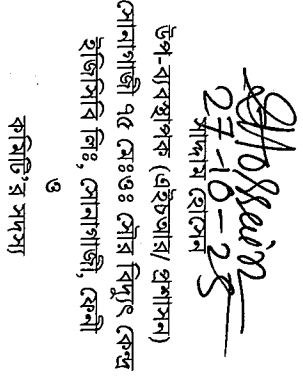 Hossein
27-10-25
সাদ্দাম হোসেন
উপ-ব্যবস্থাপক (এইচআর/ প্রশাসন)
সোনাগাজী ৭৫ মেঃওঃ সৌর বিদ্যুৎ কেন্দ্র
ইজিসিবি লিঃ, সোনাগাজী, ফেনী
ও
কমিটি'র সদস্য